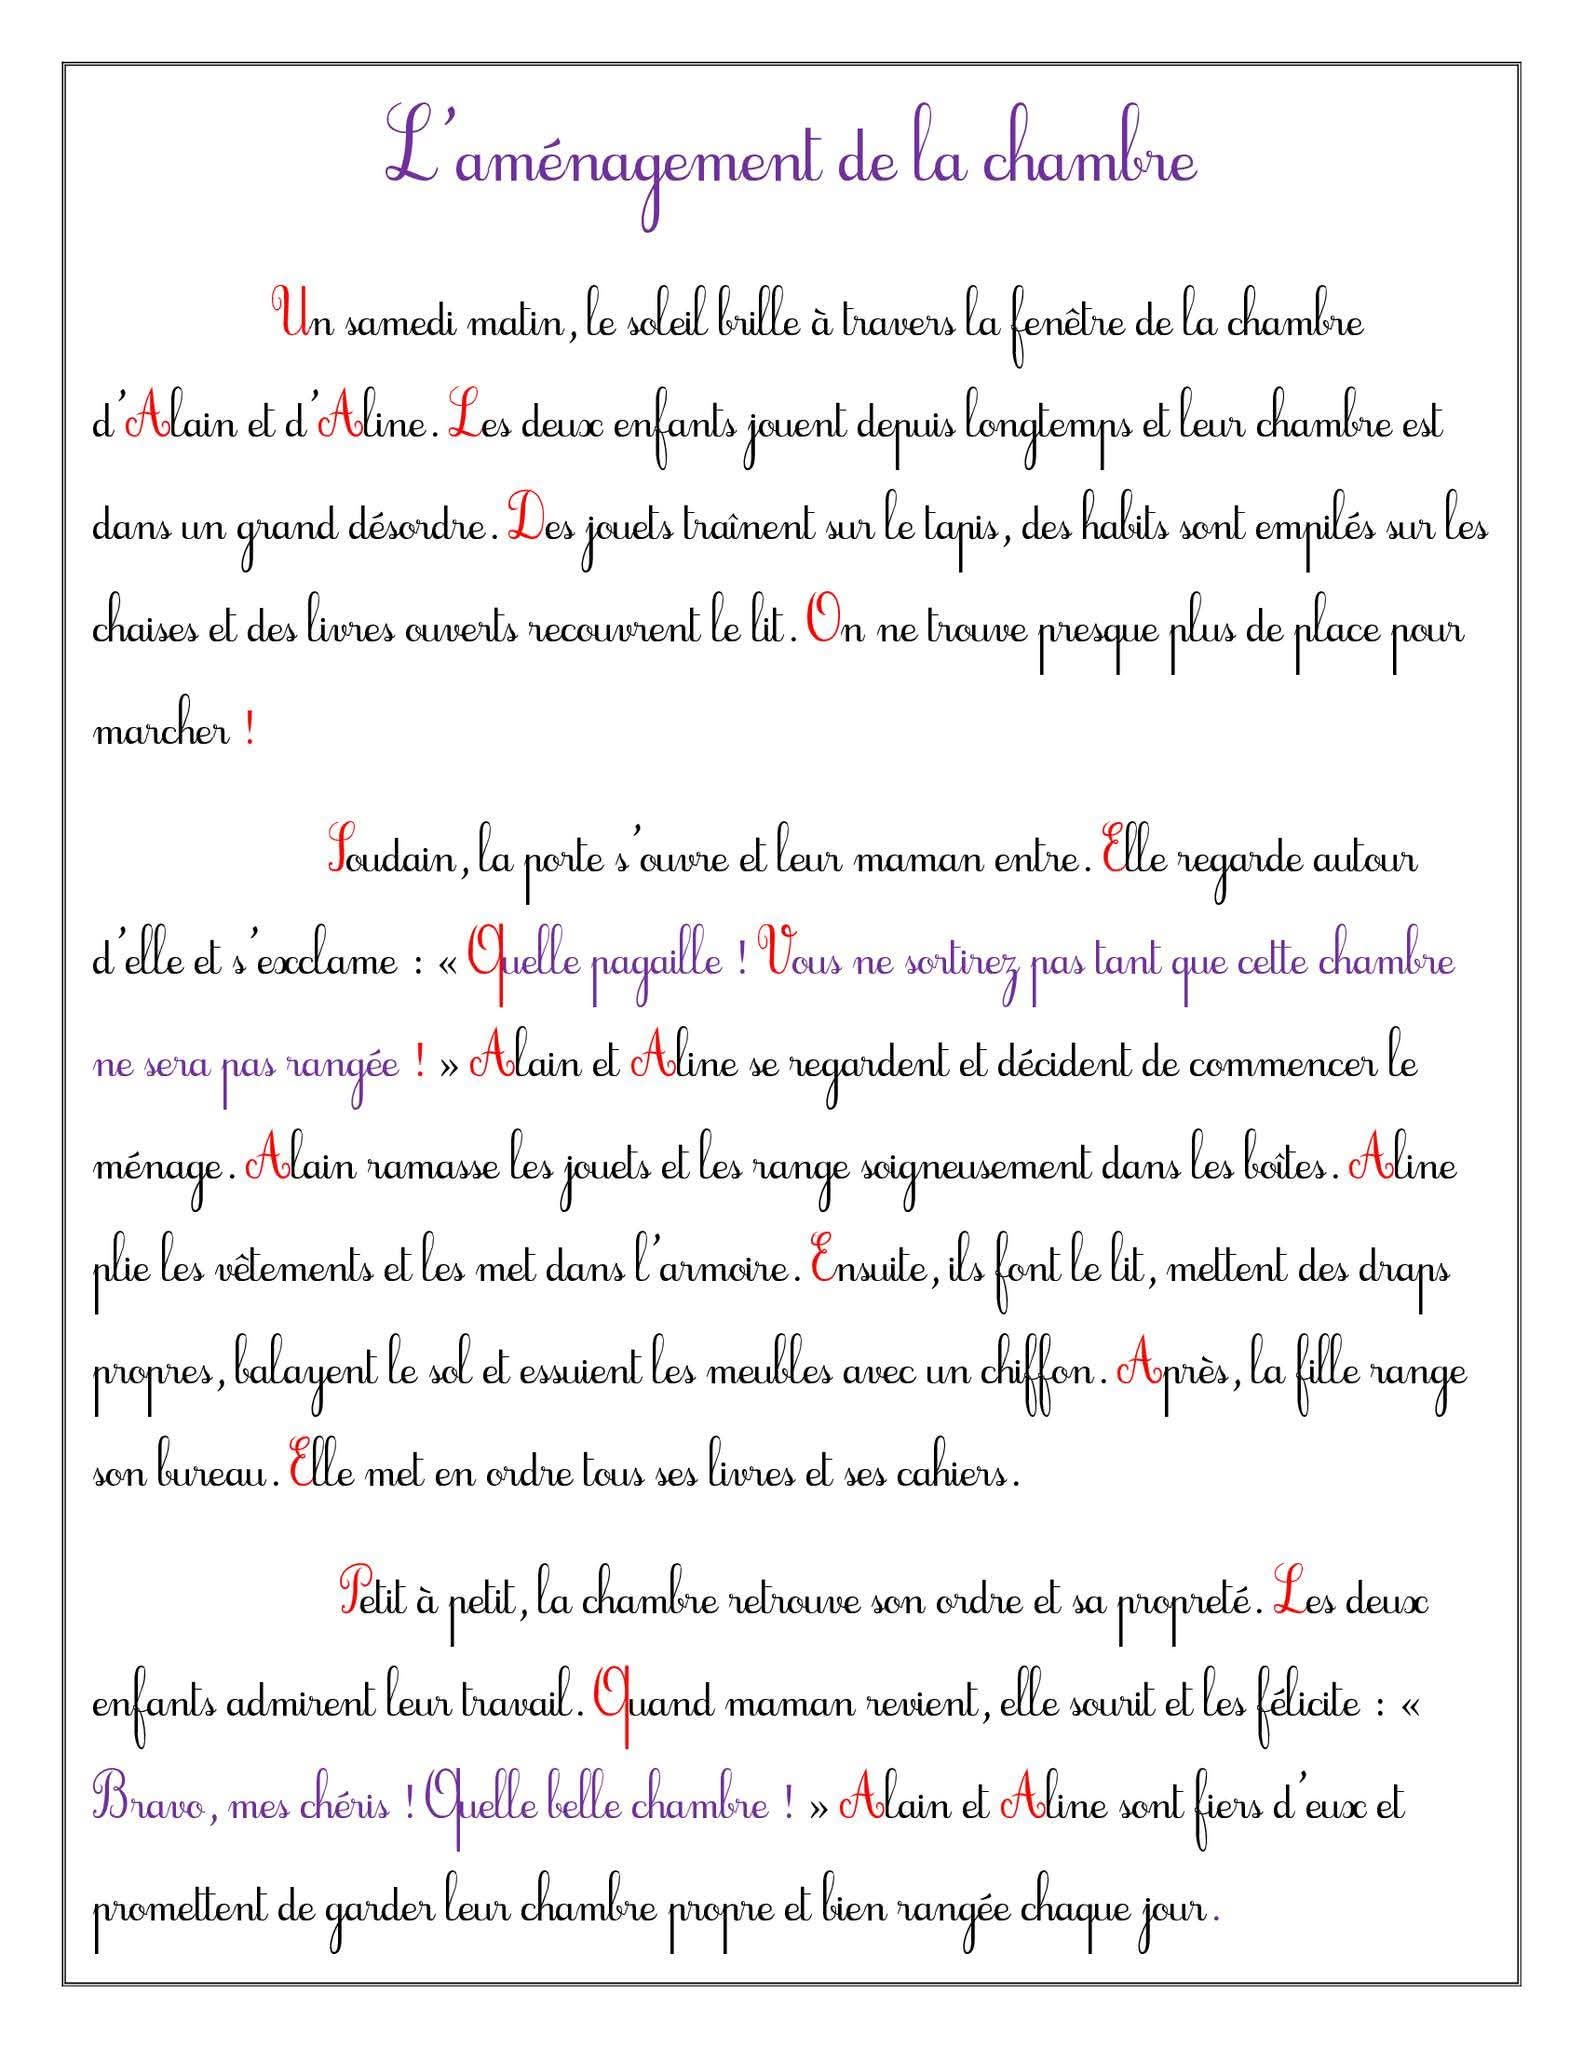 L'aménagement de la chambre
Un samedi matin, le soleil brille à travers la fenêtre de la chambre
d'Alain et d'Aline. Les deux enfants jouent depuis longtemps et leur chambre est
dans un grand désordre. Des jouets traînent sur le tapis, des habits sont empilés sur les
chaises et des livres ouverts recouvrent le lit. On ne trouve presque plus de place pour
marcher !
Soudain, la porte s'ouvre et leur maman entre. Elle regarde autour
d'elle et s'exclame : « Quelle pagaille ! Vous ne sortirez pas tant que cette chambre
ne sera pas rangée ! » Alain et Aline se regardent et décident de commencer le
ménage. Alain ramasse les jouets et les range soigneusement dans les boîtes. Aline
plie les vêtements et les met dans l'armoire. Ensuite, ils font le lit, mettent des draps
propres, balayent le sol et essuient les meubles avec un chiffon. Après, la fille range
son bureau. Elle met en ordre tous ses livres et ses cahiers.
Petit à petit, la chambre retrouve son ordre et sa propreté. Les deux
enfants admirent leur travail. Quand maman revient, elle sourit et les félicite : «
Bravo, mes chéris ! Quelle belle chambre ! » Alain et Aline sont fiers d'eux et
promettent de garder leur chambre propre et bien rangée chaque jour.